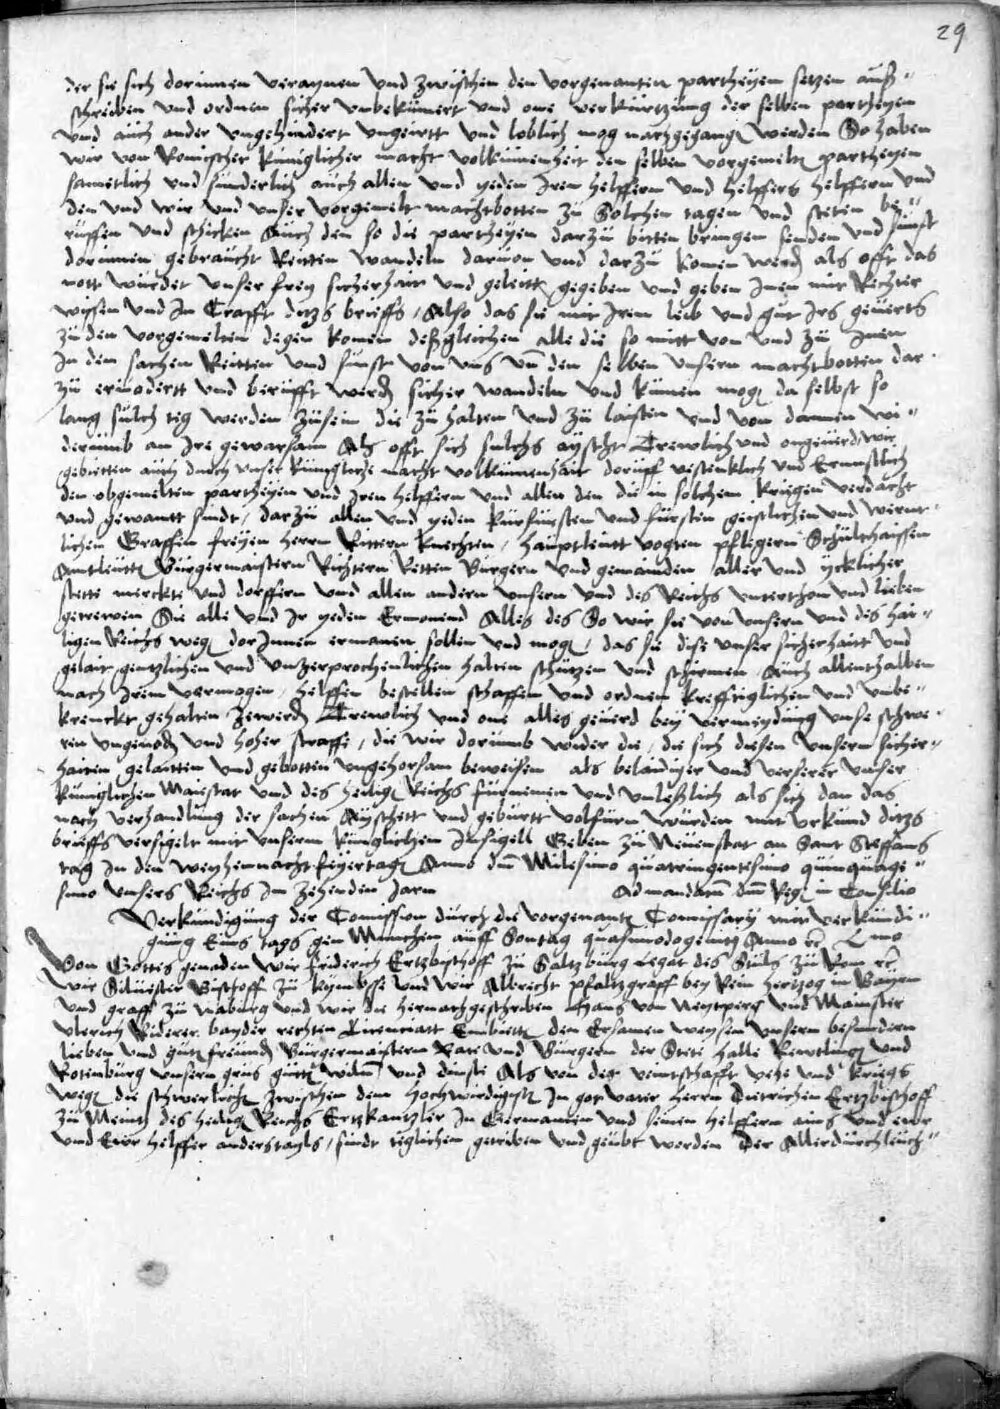 29
der sie sich dorinnen veraynen vnd zwischen den vorgenanten partheyen setzen auß-
schreiben vnd ordnen sicher vnbekumert vnd one verkurtzung der selben partheyen
vnd auch ander vngehindert vngeirrt vnd loblich mog nachgegangen werden So haben
wir von Romischer kuniglicher macht volkumenheit den selben vorgemelten partheyen
sametlich vnd sunderlich auch allen vnd yeden Iren helffern vnd helffers helffern vnd
den vnd wir vnd vnser vorgemelt machtbotten zu Solchen tagen vnd steten be-
ruffen vnd schicken Auch den so die partheyen darzu bitten bringen senden vnd sunst
dorinnen gebraucht Reitten wandeln daruon vnd darzu komen werden als offt das
nott wurdet vnser frey sicherhait vnd geleitt gegeben vnd geben Inen mit Rechter
wissen vnd In Crafft ditzs brieffs / Also das sie mit Irem leib vnd gut Irs geuerts
zu den vorgemelten tegen komen deßgleichen alle die so mitt von vnd zu Inen
In den sachen Reitten vnd sunst von vns vnd den selben vnsern machtbotten dar-
zu eruodertt vnd berufft werden sicher wandeln vnd kumen mogen da selbst so
lang sulch teg werden zusein die zu halten vnd zu laisten vnd von dannen wi-
derumb an Ire gewarsam Als offt sich sulchs ayscht Trewlich vnd ongeuerd wir
gebietten auch durch vnser kunigliche macht volkumenhait doruff vestenklich vnd Ernnstlich
den obgemelten partheyen vnd Iren helffern vnd allen den die in solchem kriegen verdacht
vnd gewantt sindt / darzu allen vnd yeden kurfursten vnd fursten geistlichen vnd wernt-
lichen Graffen freyen herrn Rittern knechten / hauptleutt vogten pflegern Schulthaissen
Amtleutt Burgermaistern Richtern Retten Burgern vnd gemainden aller vnd ycklicher
stette merckte vnd dorffern vnd allen andern vnsern vnd des Reichs vnterthon vnd lieben
getrewen Sie alle vnd Ir yeden Ermonend Alles des So wir sie von vnsern vnd des hai-
ligen Reichs wegen dorinnen ermanen sollen vnd mogen / das sie dise vnser sicherhait vnd
gelait gentzlichen vnd vnzerprochenlichen halten schutzen vnd schirmen Auch allenthalben
nach Irem vermogen / helffen bestellen schaffen vnd ordnen krefftiglichen vnd vnbe-
krenckt gehalten zewerden Trewlich vnd one alles geuerd bey vermeydung vnser schwe-
ren vngenoden vnd hoher straffe / die wir dorumb wider die / die sich diesen vnsern sicher-
haiten gelaitten vnd gebotten vngehorsam beweisen als belaidiger vnd verserer vnser
kuniglichen Maiestat vnd des heiligen Reichs furnemen vnd vnleßlich als sich dan das
nach verhandlung der sachen Ayschett vnd geburtt volfurn wurden mit vrkund ditzs
brieffs versigelt mit vnserm kuniglichem Insigell Geben zu Neuenstat an Sant Steffans
tag In den weyhennacht feyertagen Anno dni Milesimo quatringentesimo quinquage-
simo vnsers Reichs Im zehenden Jarn Ad mandatum dni Regis in Consilio
Verkundigung der Comission durch die vorgenanten Comissary mit verkundi-
gung eins tags gen Munchen auff Sontag quasimodogeniti Anno etc Lmo
Von Gottis genaden wir friderich Ertzbischoff zu Saltzburg legat des Stuls zu Rom etc
wir Siluester Bischoff zu kyembse vnd wir Albrecht pfaltzgraff bey Rein hertzog in Bayrn
vnd graff zu vaburg vnd wir die hernachgeschriben Hans von Neytperg vnd Maister
vlrich Riderer bayder rechten Licenciatt Embietten den Ersamen weysen vnsern besundern
lieben vnd guten freunden Burgermaistern Rate vnd Burgern der Stete halle Rewtlingen vnd
Rotenburg vnsern grus gunst willen vnd dinste Als von der veintschafft vehe vnd kriegs
wegen die schwerlichen zwischen dem hochwirdigisten In got vater herrn Dietrichen Ertzbischoff
zu Meintz des heiligen Reichs Ertzkantzler In Germanien vnd seinen helffern ains vnd ewr
vnd Ewr helffer anderstayls / sindt teglichen getriben vnd geubt worden Der Allerdurchleuch-